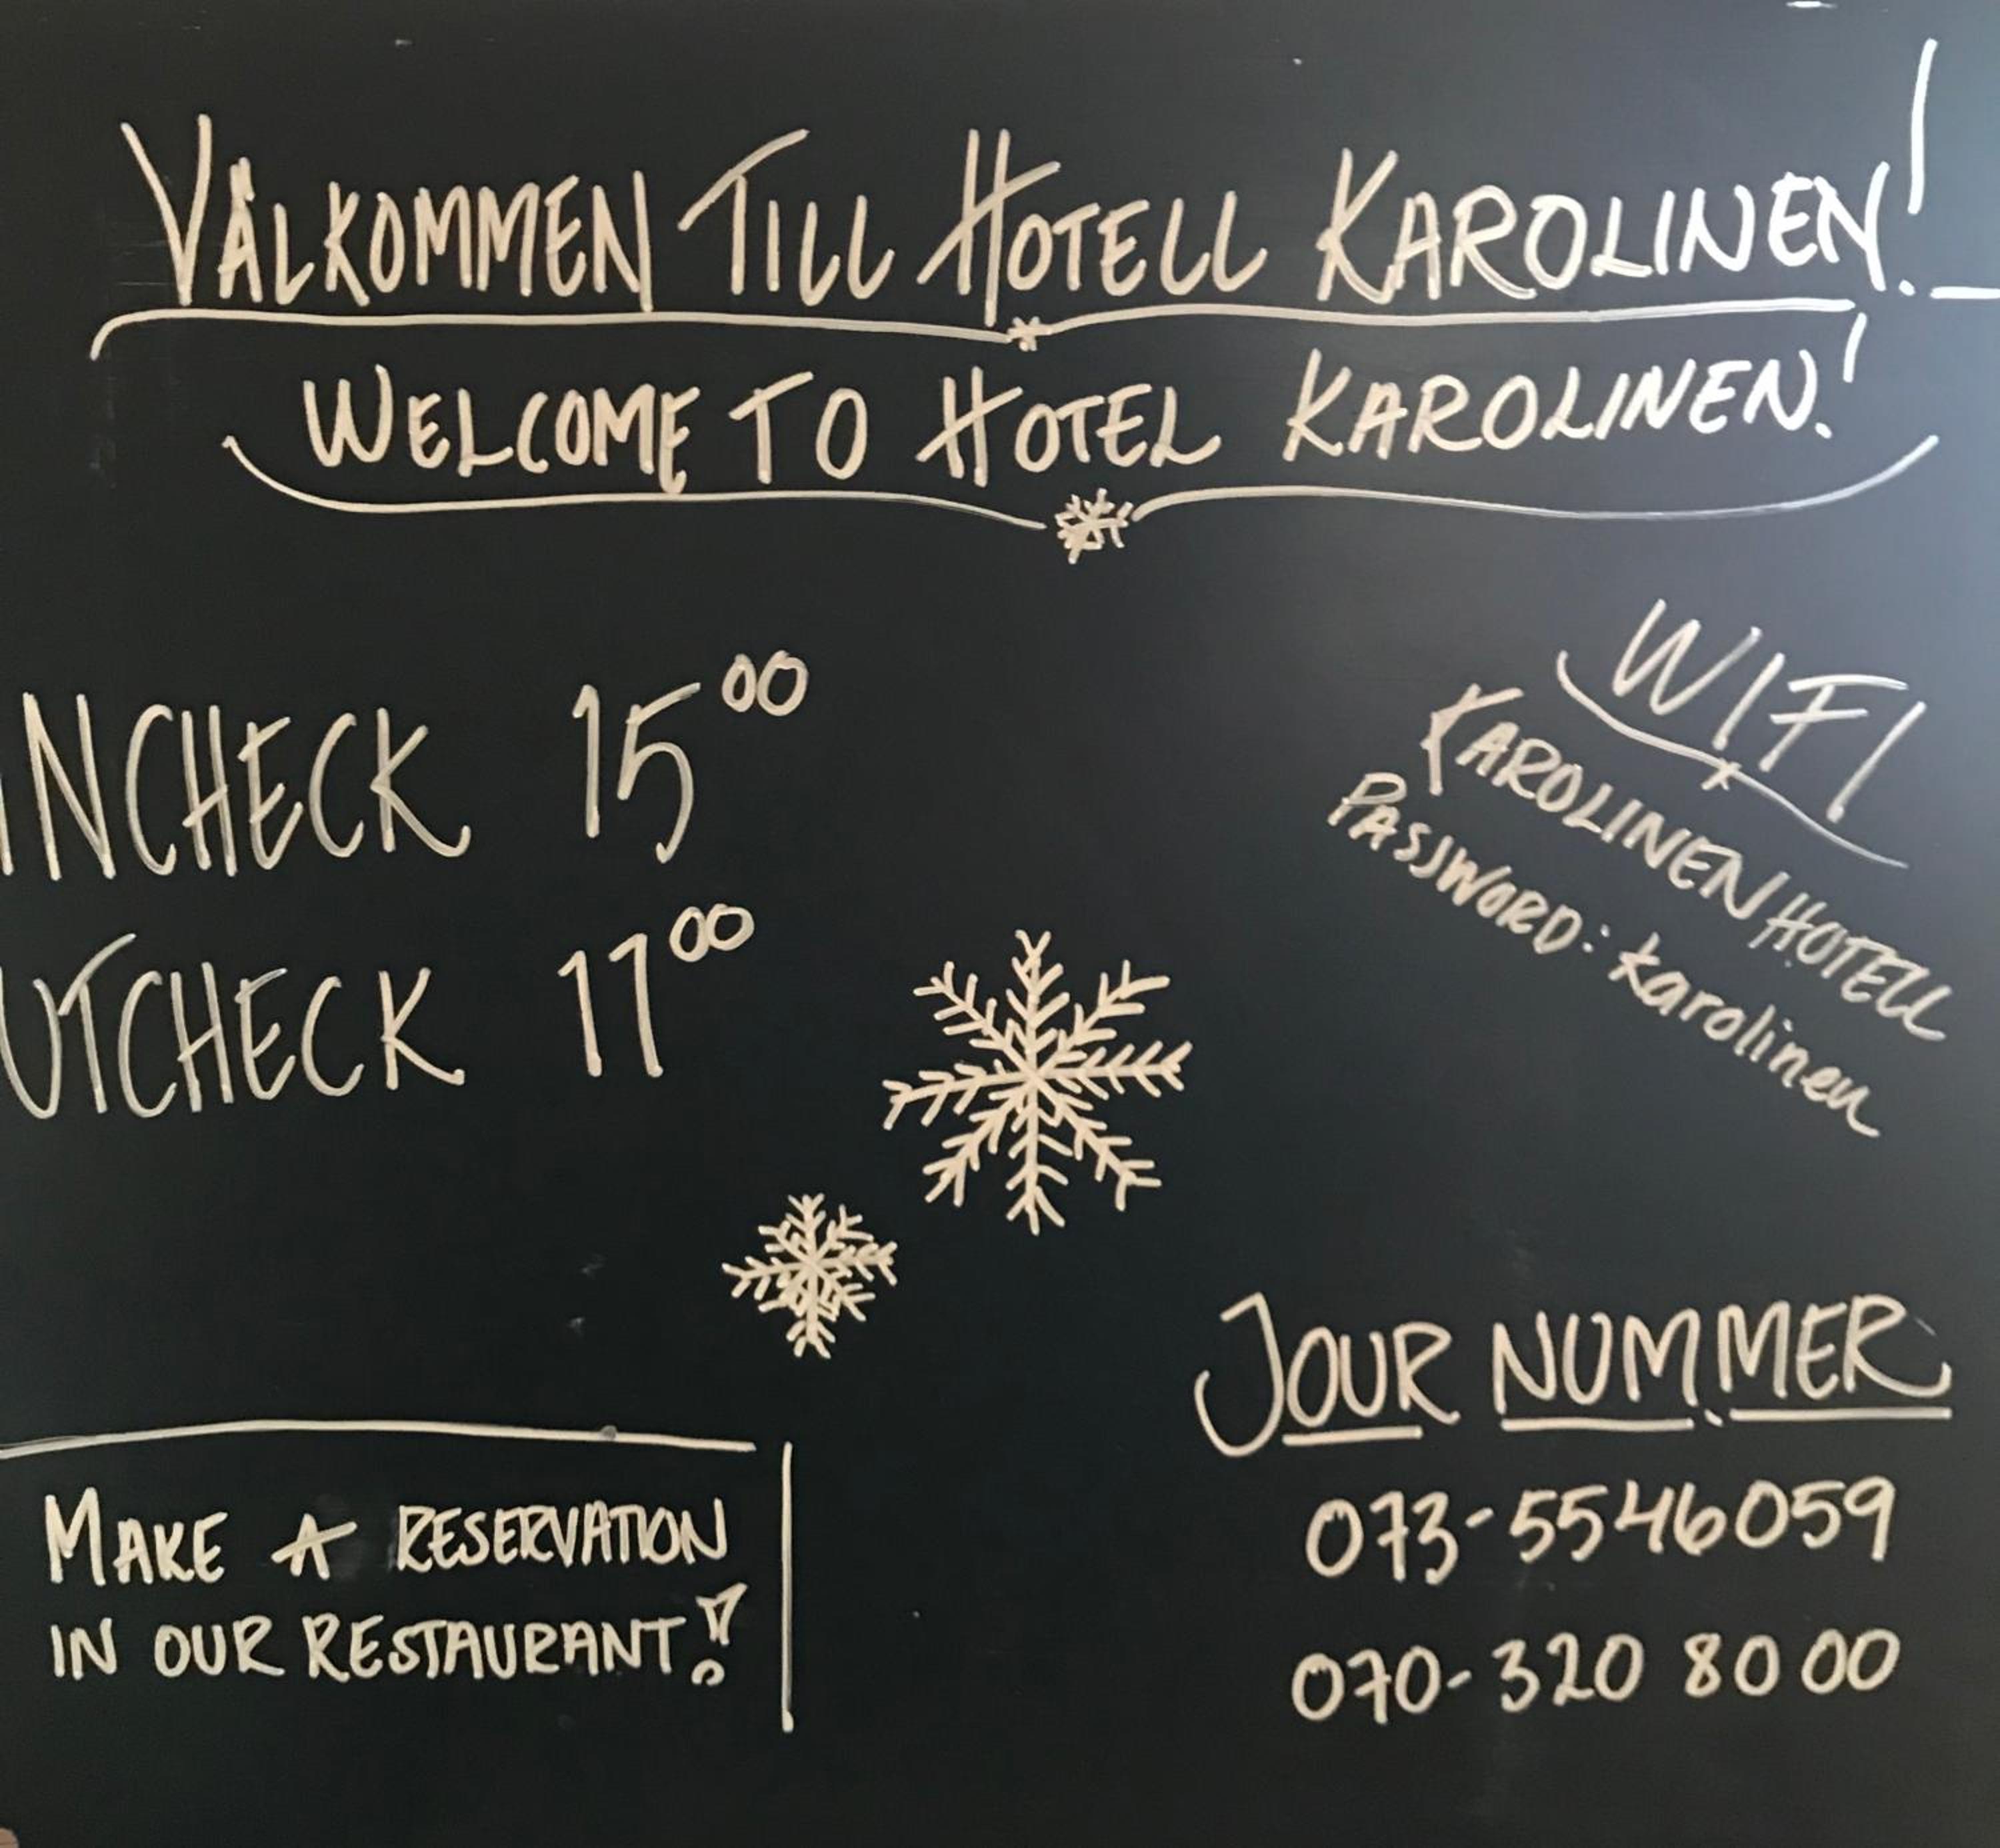 VÄLKOMMEN TILL HOTELL KAROLINEN!
WELCOME TO HOTEL KAROLINEN!
INCHECK 15⁰⁰
UTCHECK 11⁰⁰
WIFI
KAROLINEN HOTELL
PASSWORD: karolinen
MAKE A RESERVATION
IN OUR RESTAURANT!
JOUR NUMMER
073-5546059
070-320 80 00